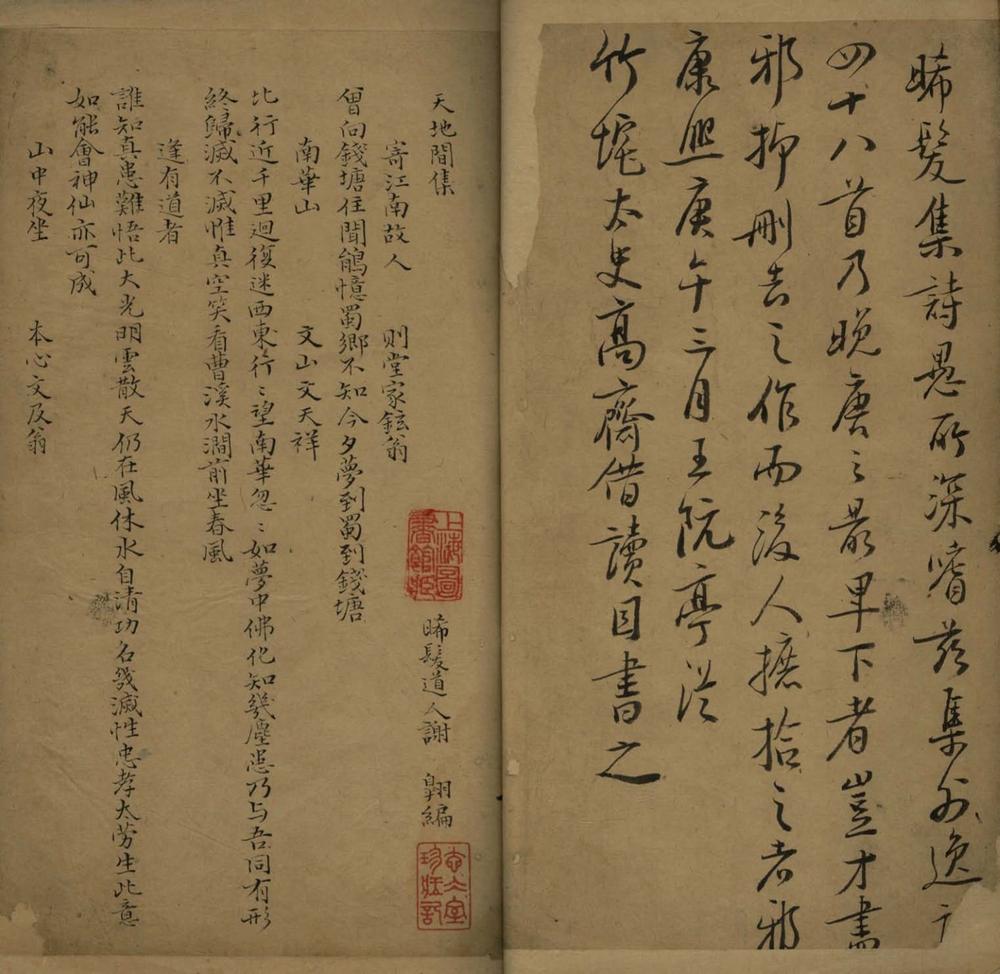 晞髮集詩愚所深嗜茲集外逸
四十八首乃晚唐之最卑下者豈才盡
邪抑刪去之作而後人摭拾之者邪
康熙庚午三月王阮亭從
竹垞太史高齋借讀因書之
天地間集 晞髮道人謝 翱編
上海圖書館藏
寄江南故人 則堂家鉉翁
曾向錢塘住聞鵑憶蜀鄉不知今夕夢到蜀到錢塘
南華山 文山文天祥
比行近千里迴復迷西東行〻望南華忽〻如夢中佛化知幾塵患乃与吾同有形
終歸滅不滅惟真空笑看曹溪水澗前坐春風
逢有道者
誰知真患難悟此大光明雲散天仍在風休水自清功名幾滅性忠孝太勞生此意
如能會神仙亦可成
山中夜坐 本心文及翁